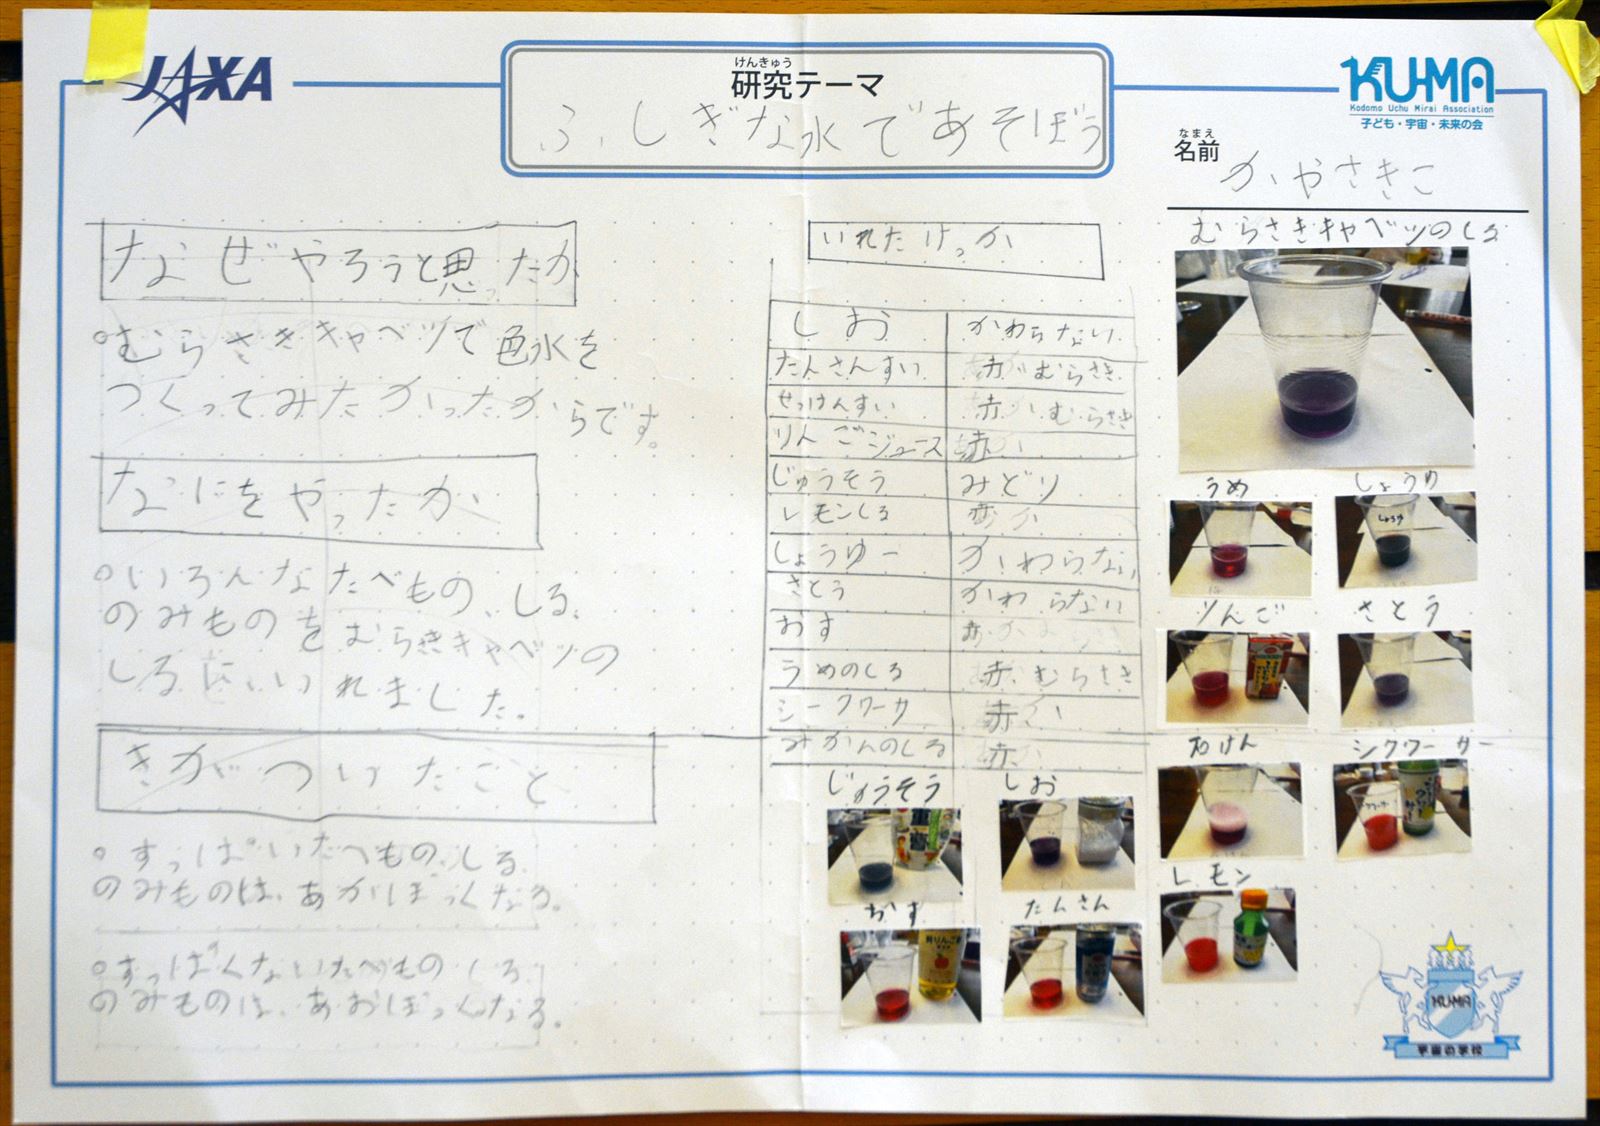 JAXA
けんきゅう
研究テーマ
ふしぎな水であそぼう
KU-MA
Kodomo Uchu Mirai Association
子ども・宇宙・未来の会
なまえ
名前
かやさきこ
なぜやろうと思ったか
○むらさきキャベツで色水を
つくってみたかったからです。
なにをやったか
○いろんなたべもの、しる、
のみものをむらさきキャベツの
しるにいれました。
きがついたこと
○すっぱいたべもの、しる、
のみものは、あかっぽくなる。
○すっぱくないたべもの しる
のみものは、あおぽっくなる。
いれたけっか
しお かわらない
たんさんすい 赤 むらさき
せっけんすい 赤 むらさき
りんごジュース 赤
じゅうそう みどり
レモンしる
しょうゆー かわらない
さとう かわらない
おす
うめのしる 赤 むらさき
シークワーサ 赤
みかんのしる 赤
むらさきキャベツのしる
うめ
しょうゆ
しょうゆ
りんご
さとう
石けん
シクワーサー
レモン
じゅうそう
しお
おす
たんさん
KU-MA
宇宙の学校